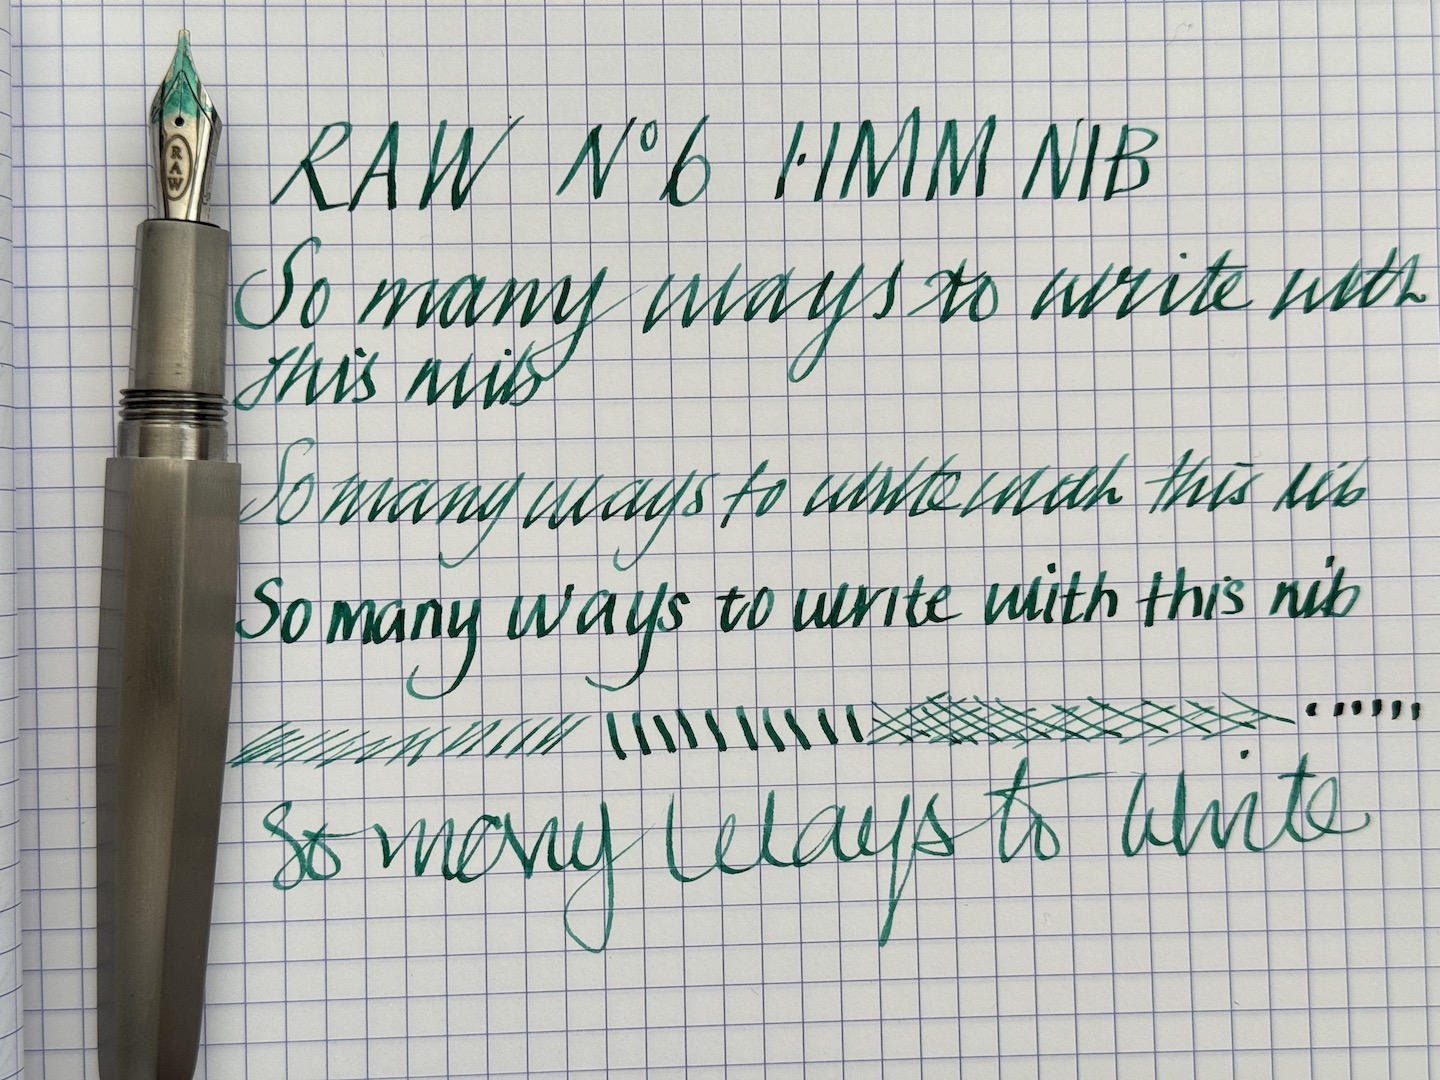 RAW
RAW N°6 1·1MM NIB
So many ways to write with
this nib
So many ways to write with this nib
So many ways to write with this nib
So many ways to write